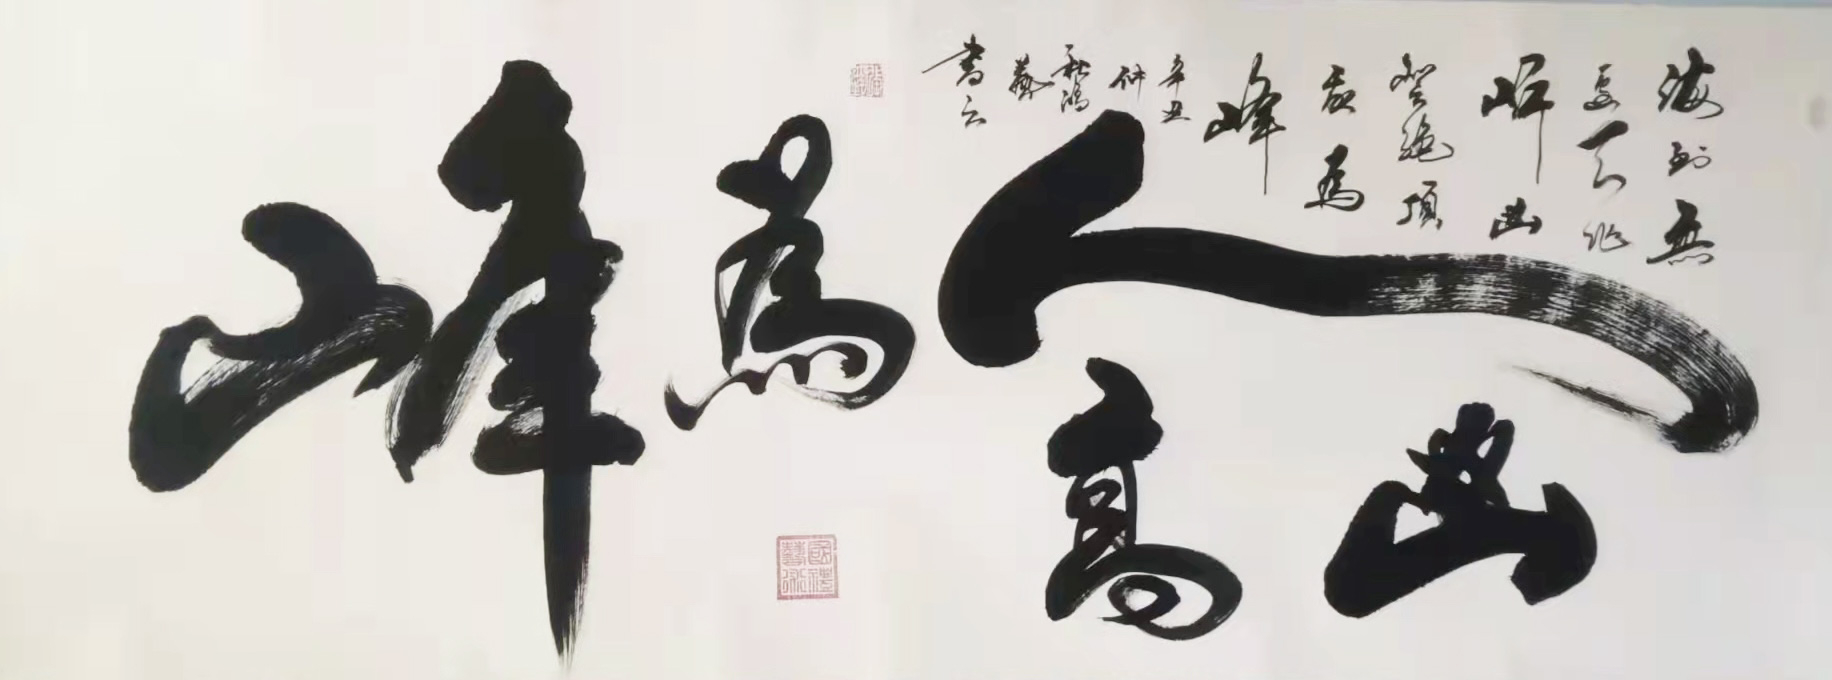 山高人為峰
海到無
邊天作
岸山
登絕頂
我為
峰
辛丑
仲
秋鴻
藝
書云
國禮
藝術